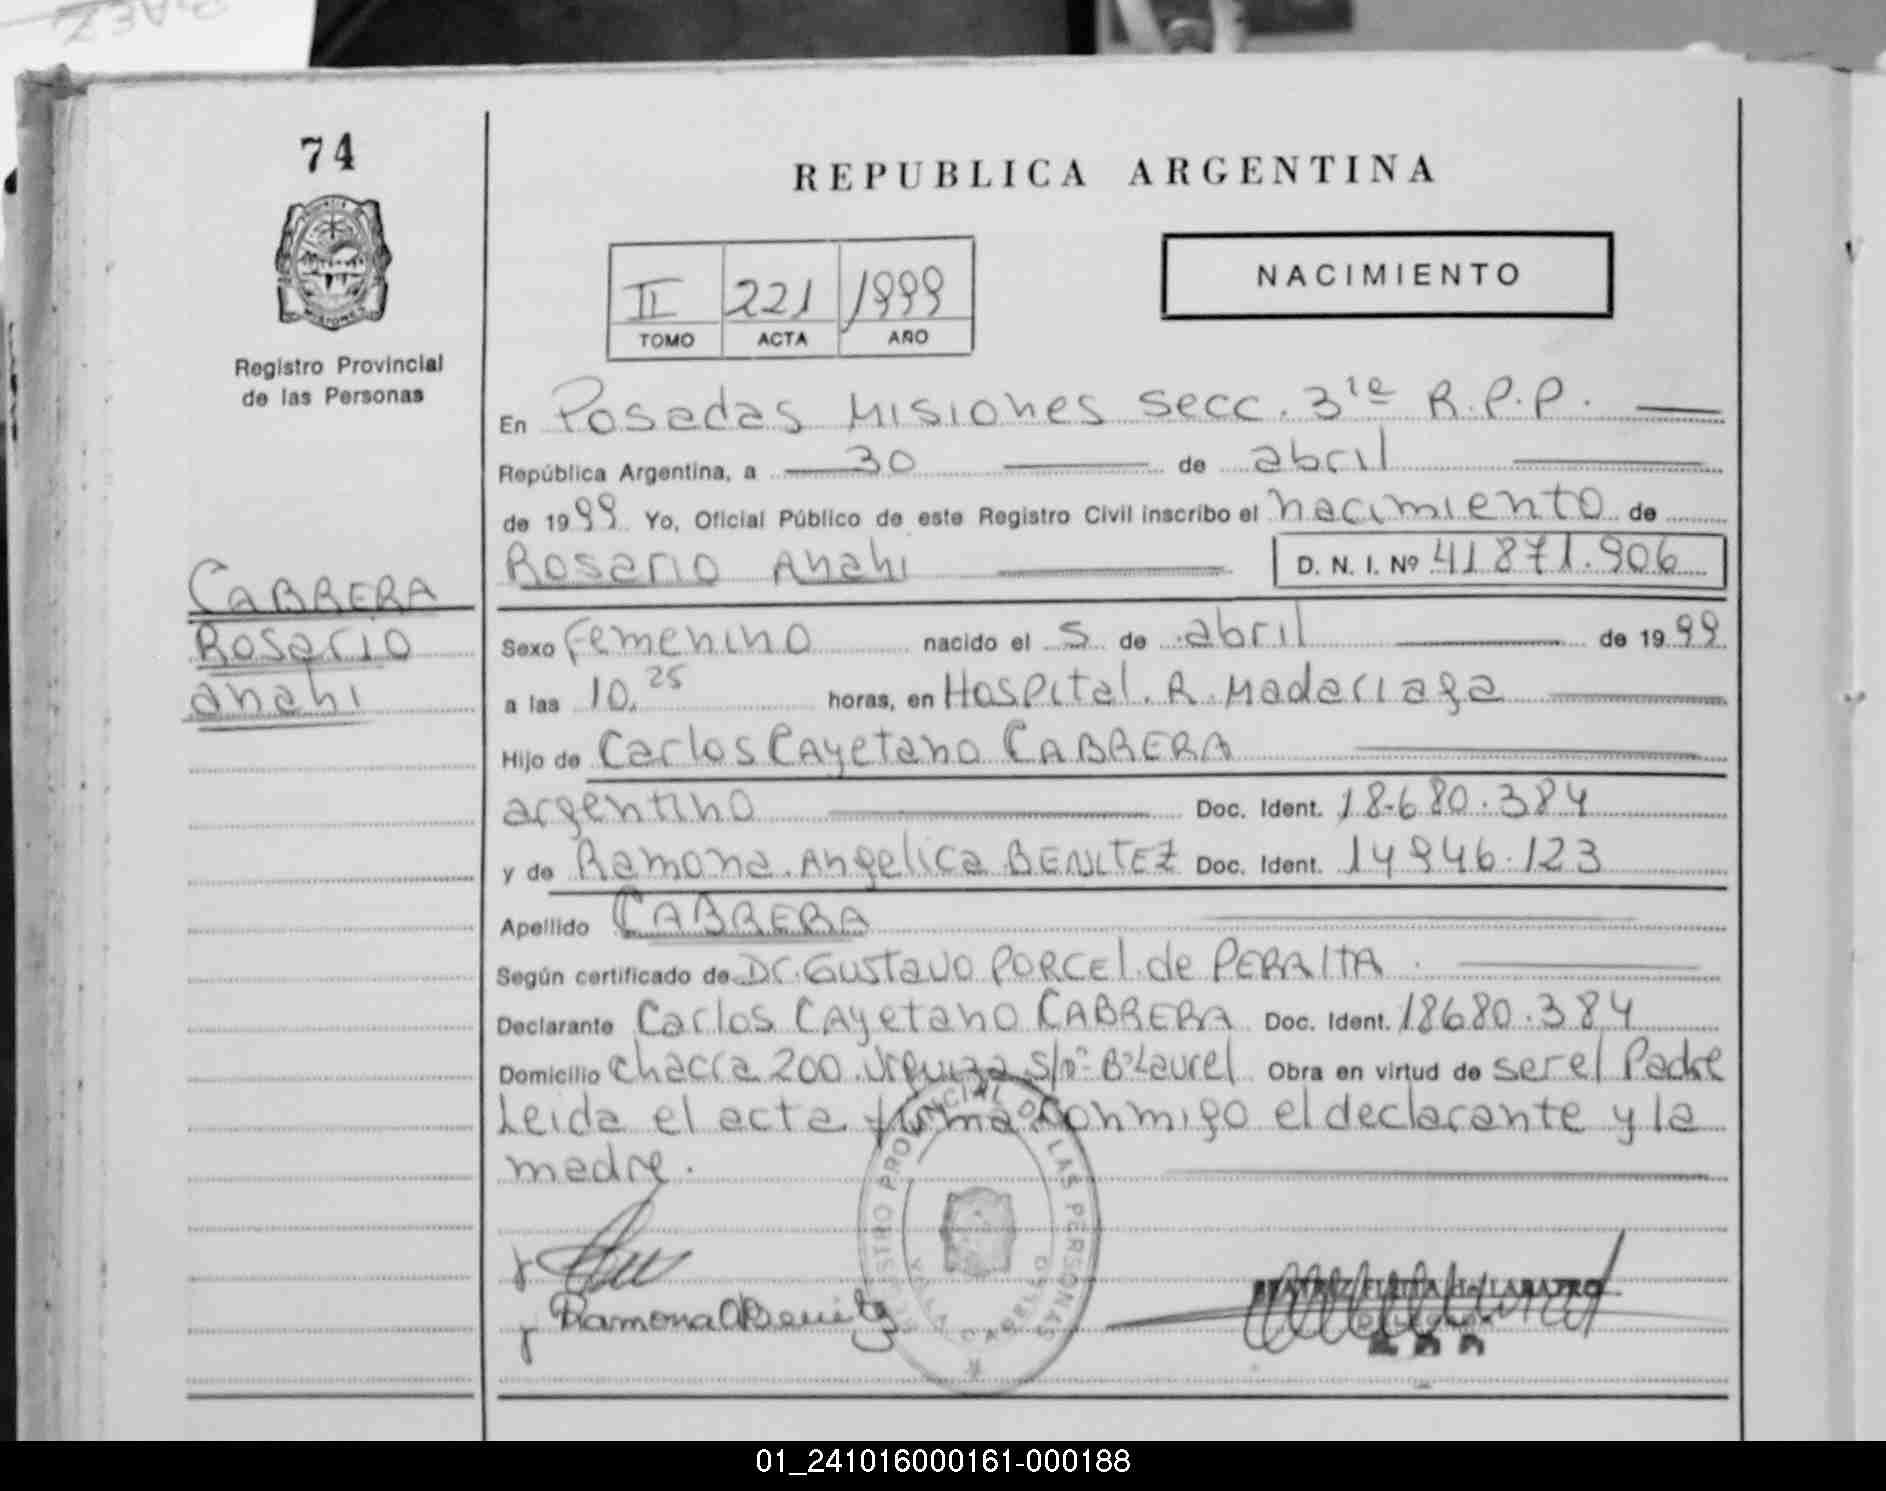 PAEZ
74
REPUBLICA ARGENTINA
PROVINCIA
MISIONES
II 221 1999
TOMO ACTA AÑO
NACIMIENTO
Registro Provincial
de las Personas
En Posadas Misiones secc. 3ra R.P.P.
República Argentina, a 30 de abril
de 1999 Yo, Oficial Público de este Registro Civil inscribo el nacimiento de
Rosario Anahi D. N. I. Nº 41871.906
CABRERA
Rosario
anahi
Sexo Femenino nacido el 5 de abril de 1999
a las 10.25 horas, en Hospital. R. Madariaga
Hijo de Carlos Cayetano CABRERA
argentino Doc. Ident. 18.680.384
y de Ramona Angelica BENITEZ Doc. Ident. 14946.123
Apellido CABRERA
Según certificado de Dr. Gustavo PORCEL de PERALTA
Declarante Carlos CAyetano CABRERA Doc. Ident. 18680.384
Domicilio chacra 200. Urquiza s/nº Bº Laurel Obra en virtud de ser el Padre
Leida el acta firma conmigo el declarante y la
madre.
REGISTRO PROVINCIAL DE LAS PERSONAS
VILLA CABELLO
Ramona A Benitez
01_241016000161-000188